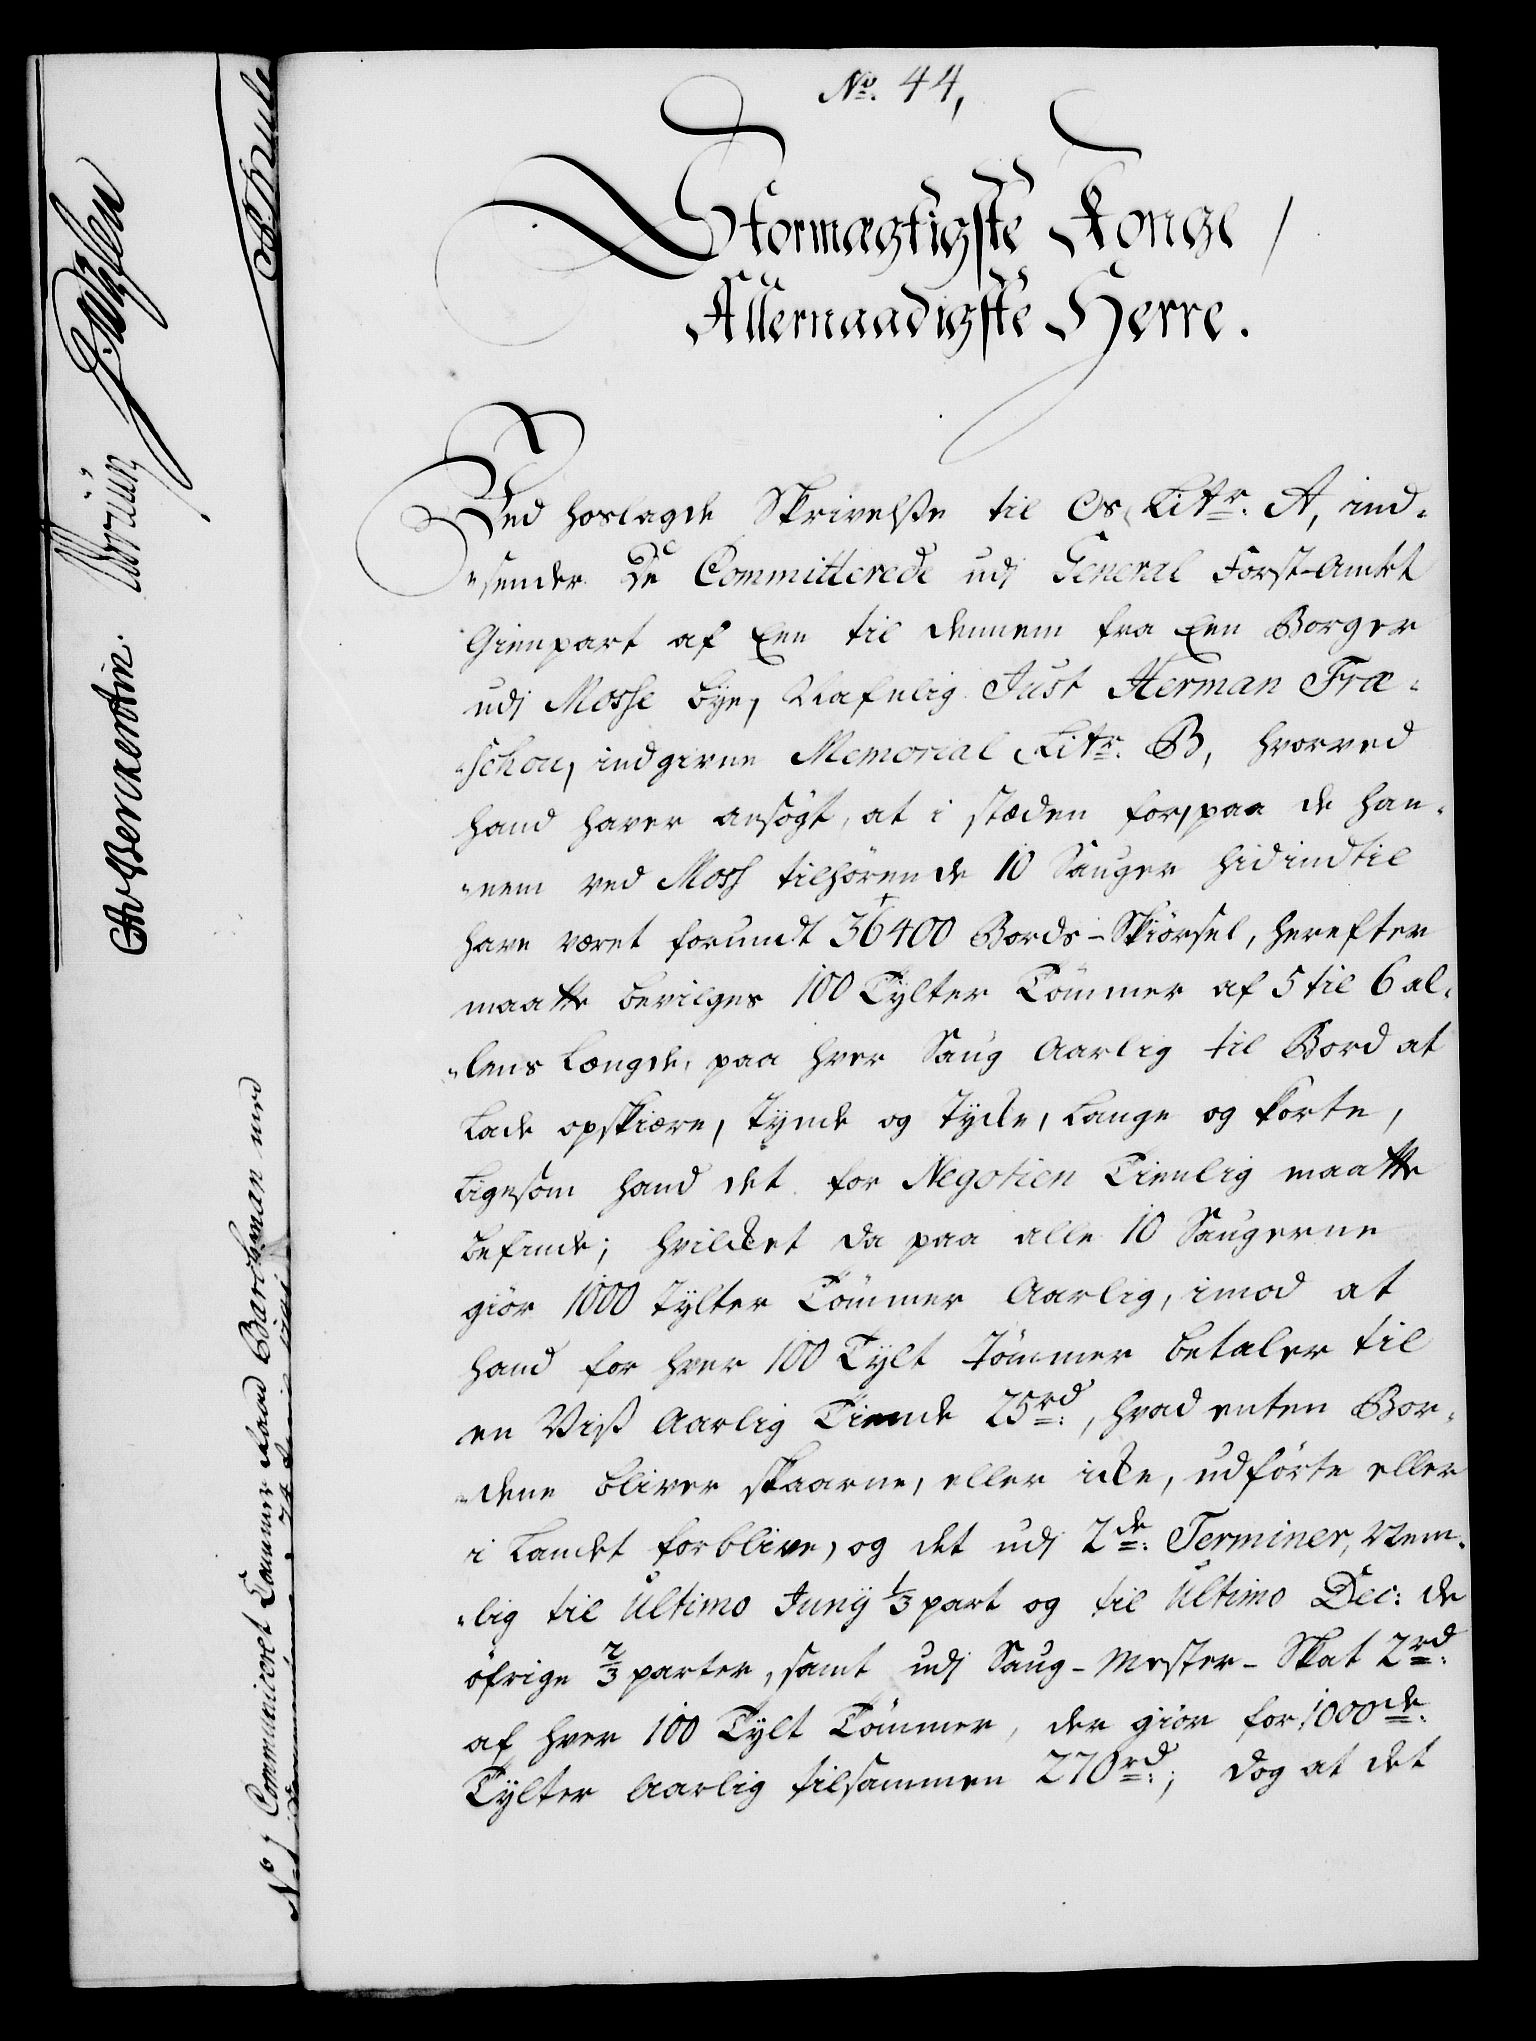 No. 44,
Stormægtigste Konge/
Allernaadigste Herre.
Ved hoslagde Skrivelsse til Os, Litr. A, ind-
sender De Committerede udi General Forst-Amtet
Gienpart af een til dennem fra een Borger
udi Mosse bye, Nafnlig Just Herman Fræ-
schou, indgivne Memorial Litr. B, hvorved
hand haver ansøgt, at i stæden for, paa de han-
nem ved Moss tilhørende 10 Sauger hidindtil
have været forundt 36400 Bords-Skiørsel, herefter
maatte bevilges 100 Tylter Tømmer af 5 til 6 al-
lens Længde, paa hver Saug Aarlig til Bord at
lade opskiære, tynde og tycke, lange og korte,
ligesom hand det for Negotien tienlig maatte
befinde; hvilcket da paa alle 10 Saugerne
giør 1000 Tylter Tømmer Aarlig, imod at
hand for hver 100 Tylt Tømmer betaler til
en Viss Aarlig Tiende 25 rd., hvad enten Bor-
dene bliver skaarne, eller icke, udførte eller
i Landet forblive, og det udi 2de. Terminer, Nem-
lig til Ultimo Junij 1/3 part og til Ultimo Dec: de
øfrige 2/3 parter, samt udi Saug-Mester-Skat 2 rd.
af hver 100 Tylt Tømmer, der giør for 1000de.
Tylter Aarlig tilsammen 270 rd.; dog at det
CA v Berckentin.
No. 1 Communiceret Cammer Raad Barchman med